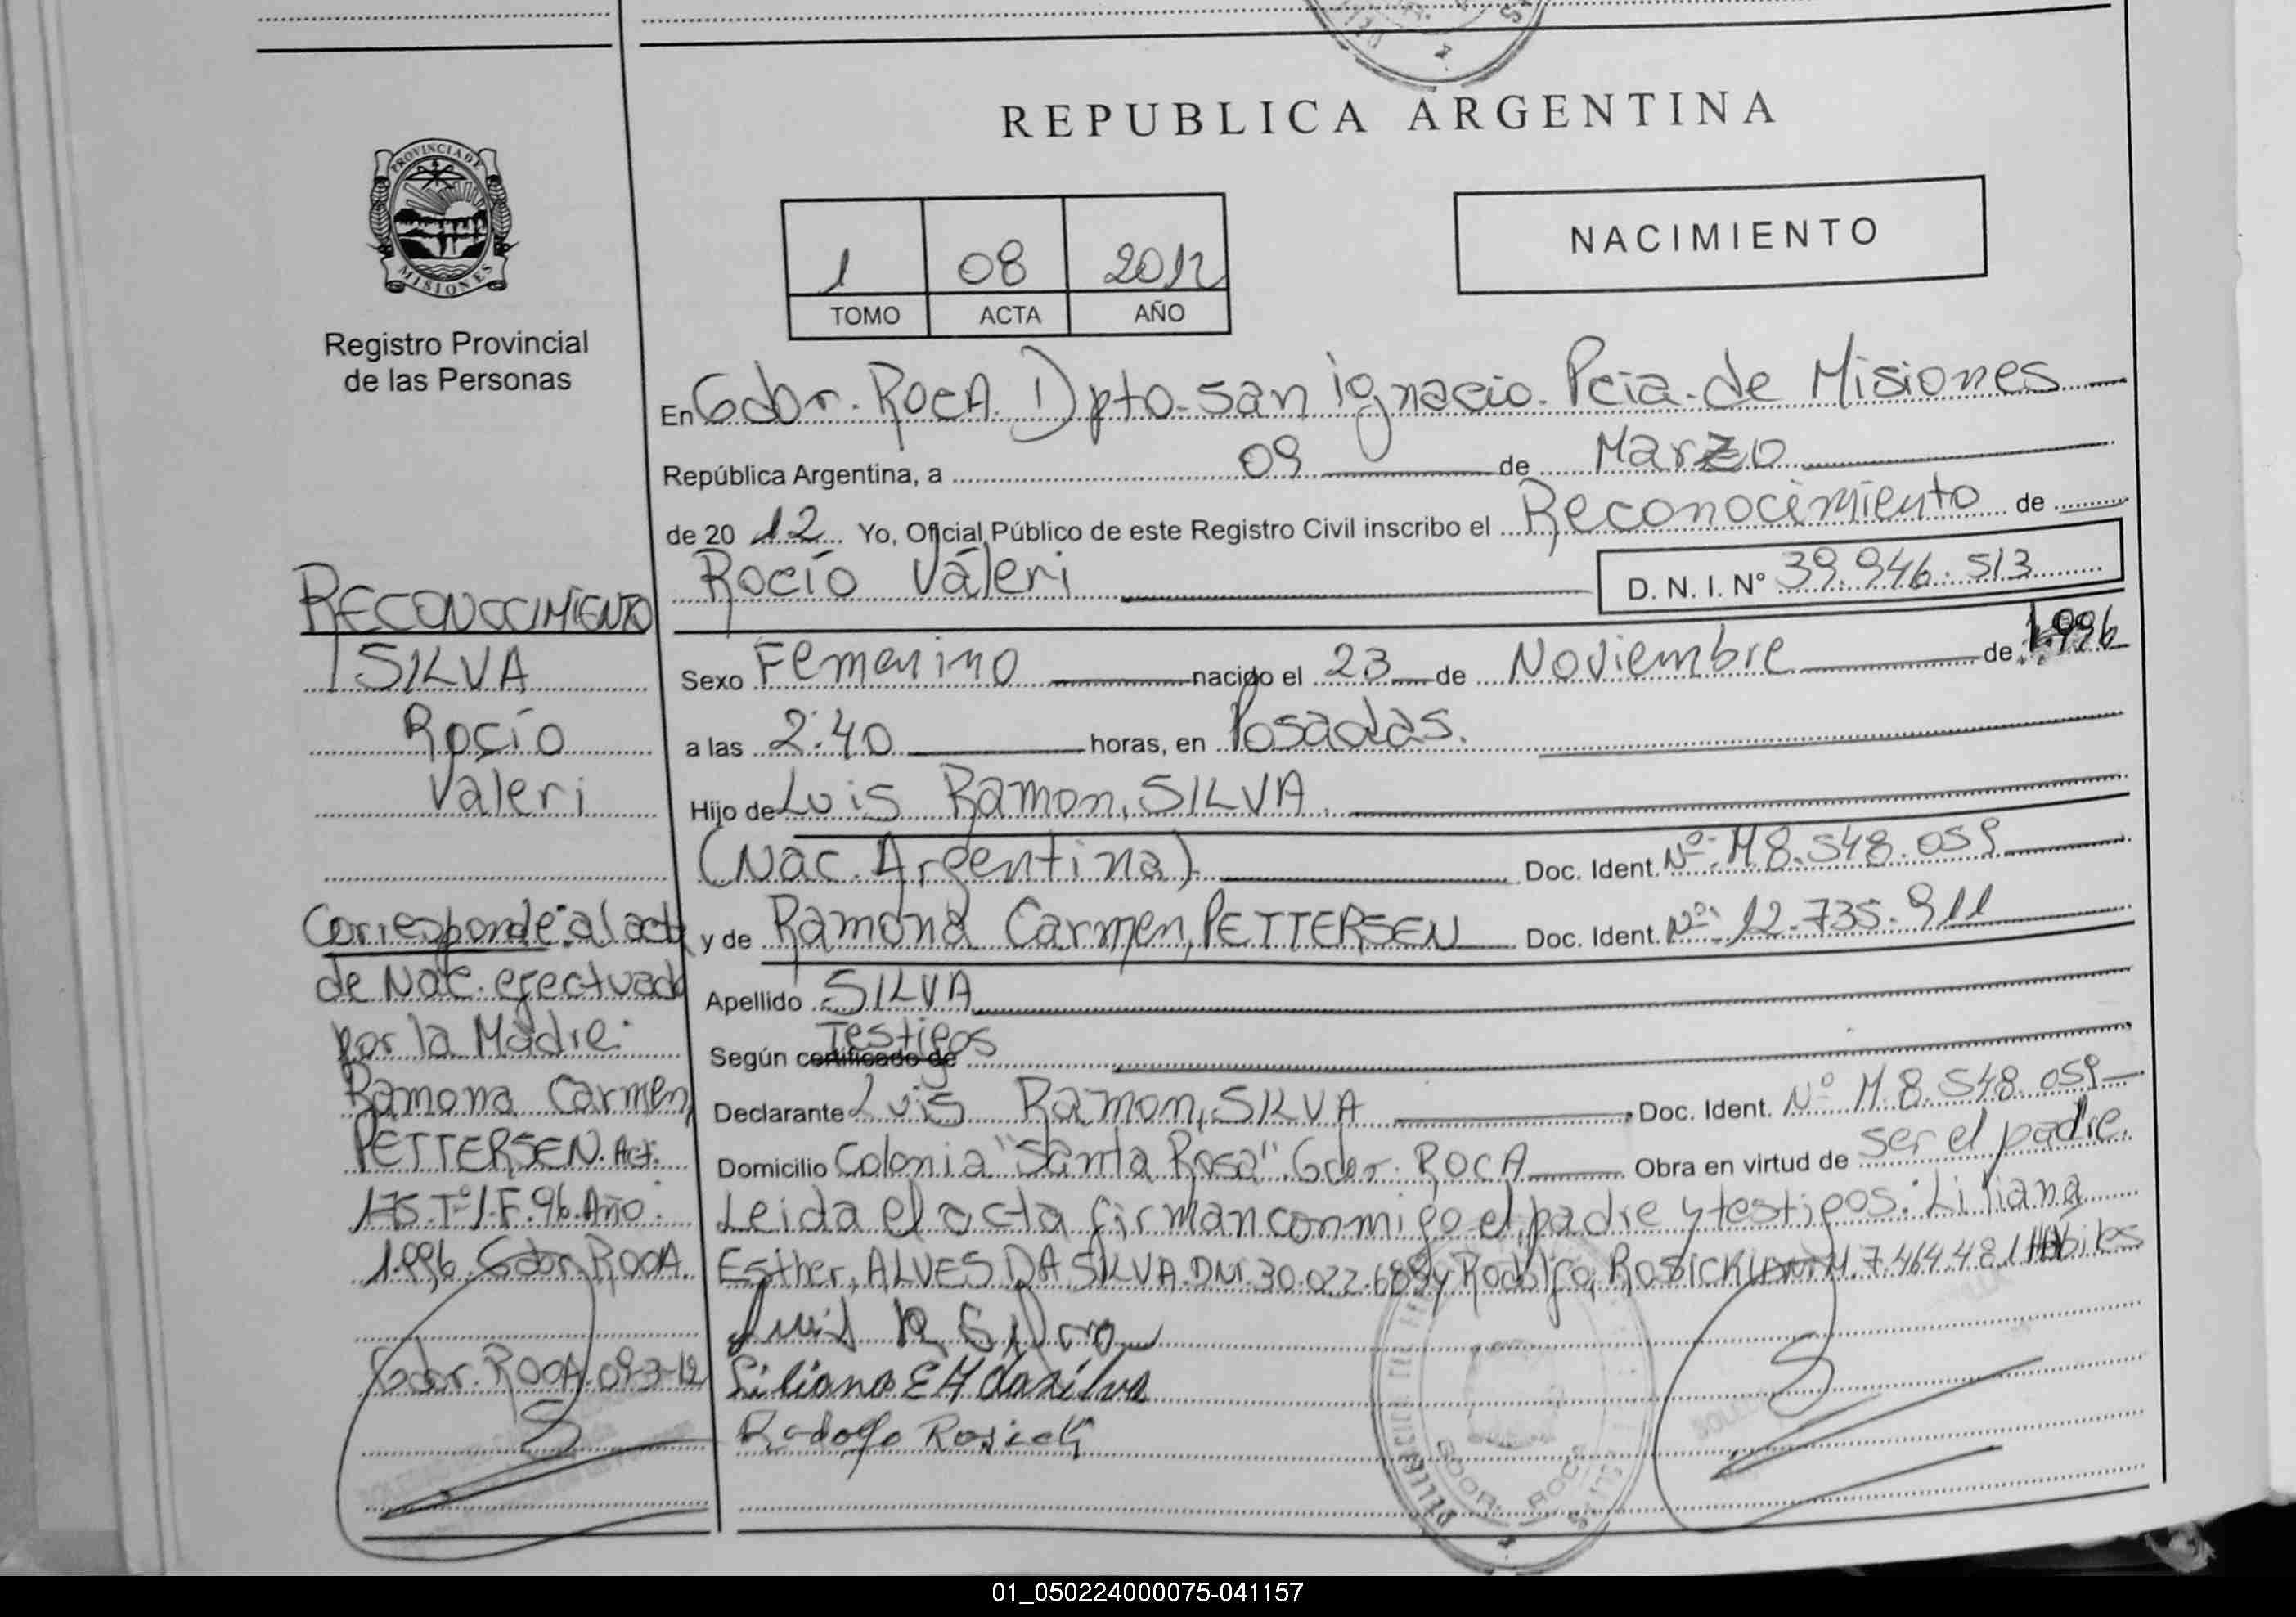 REPUBLICA ARGENTINA
PROVINCIA DE
MISIONES
Registro Provincial
de las Personas
1 08 2012
TOMO ACTA AÑO
NACIMIENTO
En Gdor. ROCA. Dpto. San Ignacio. Pcia. de Misiones
República Argentina, a 09 de Marzo
de 20 12 Yo, Oficial Público de este Registro Civil inscribo el Reconocimiento de
Rocío Váleri D. N. I. N° 39.946.513
Sexo Femenino nacido el 23 de Noviembre de 1.996
a las 2:40 horas, en Posadas.
Hijo de Luis Ramon, SILVA.
(Nac. Argentina) Doc. Ident. Nº: M 8.548.059
y de Ramona Carmen, PETTERSEN Doc. Ident. Nº: 12.735.911
Apellido SILVA
Testigos
Según certificado de
Declarante Luis Ramon, SILVA Doc. Ident. Nº M.8.548.059
Domicilio Colonia "Santa Rosa". Gdor. ROCA Obra en virtud de ser el padre.
Leida el acta firman conmigo el padre y testigos: Liliana
Esther, ALVES DA SILVA. DNI. 30.022.689 y Rodolfo, ROSICKI M.7.464.481 Hábiles
Luis R Silva
Liliana E A da silva
Rodolfo Rosicki
RECONOCIMIENTO
SILVA
Rocío
Valeri
Corresponde: al acta
de Nac. efectuada
por la Madre:
Ramona Carmen
PETTERSEN. Act:
175. Tº 1. F. 96. Año:
1.996. Gdor. ROCA.
Gdor. ROCA. 09-3-12
GDOR. ROCA
01_050224000075-041157